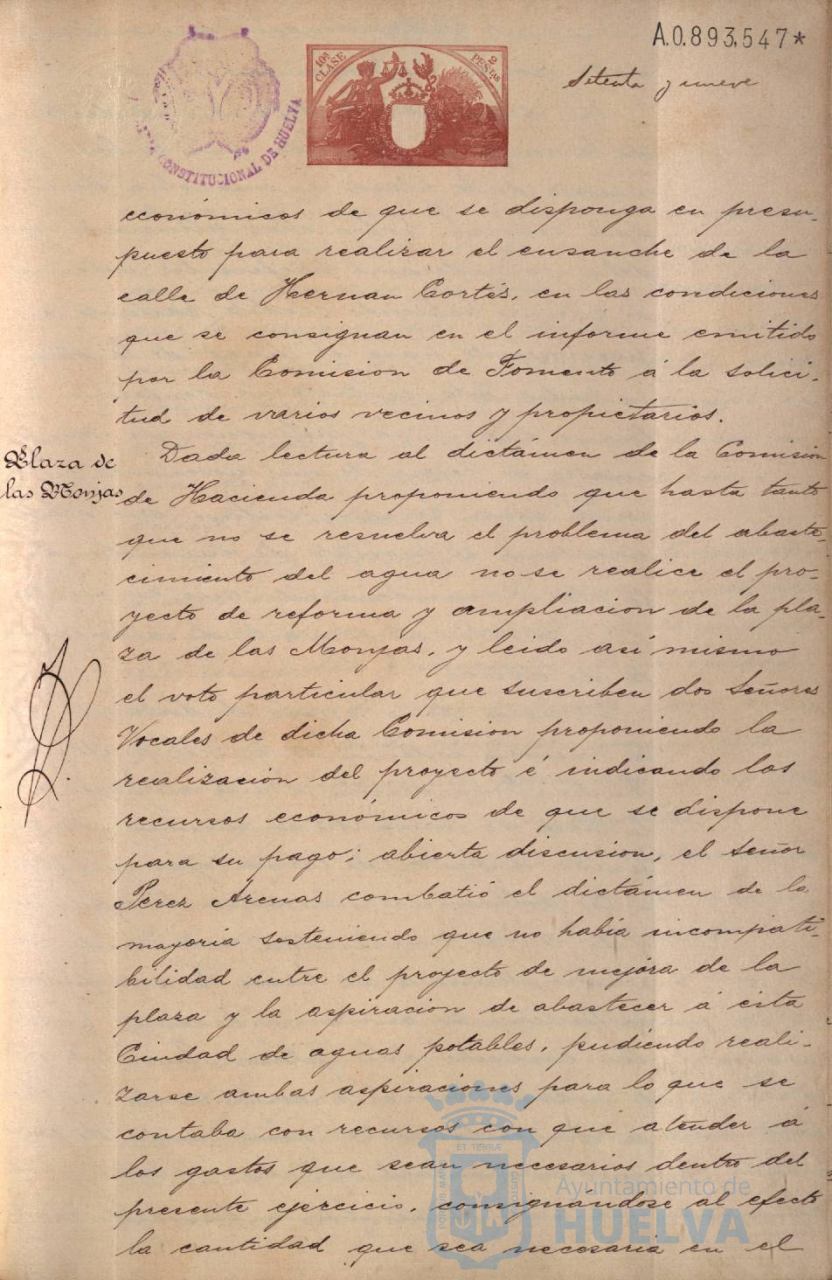 A.0.893,547*
10ª CLASE
2 PESETAS
CONSTITUCIONAL DE HUELVA
Setenta y nueve
económicos de que se disponga en presu-
puesto para realizar el ensanche de la
calle de Hernan Cortés, en las condiciones
que se consignan en el informe emitido
por la Comision de Fomento á la solici-
tud de varios vecinos y propietarios.
Plaza de
las Monjas
Dada lectura al dictámen de la Comision
de Hacienda proponiendo que hasta tanto
que no se resuelva el problema del abaste-
cimiento del agua no se realice el pro-
yecto de reforma y ampliacion de la pla-
za de las Monjas, y leido así mismo
el voto particular que suscriben dos Señores
Vocales de dicha Comision proponiendo la
realización del proyecto é indicando los
recursos económicos de que se dispone
para su pago; abierta discusion, el Señor
Perez Arenas combatió el dictámen de la
mayoria sosteniendo que no había incompati-
bilidad entre el proyecto de mejora de la
plaza y la aspiracion de abastecer á esta
Ciudad de aguas potables, pudiendo reali-
zarse ambas aspiraciones para lo que se
contaba con recursos con que atender á
los gastos que sean necesarios dentro del
presente ejercicio, consignandose al efecto
la cantidad que sea necesaria en el
Ayuntamiento de
HUELVA